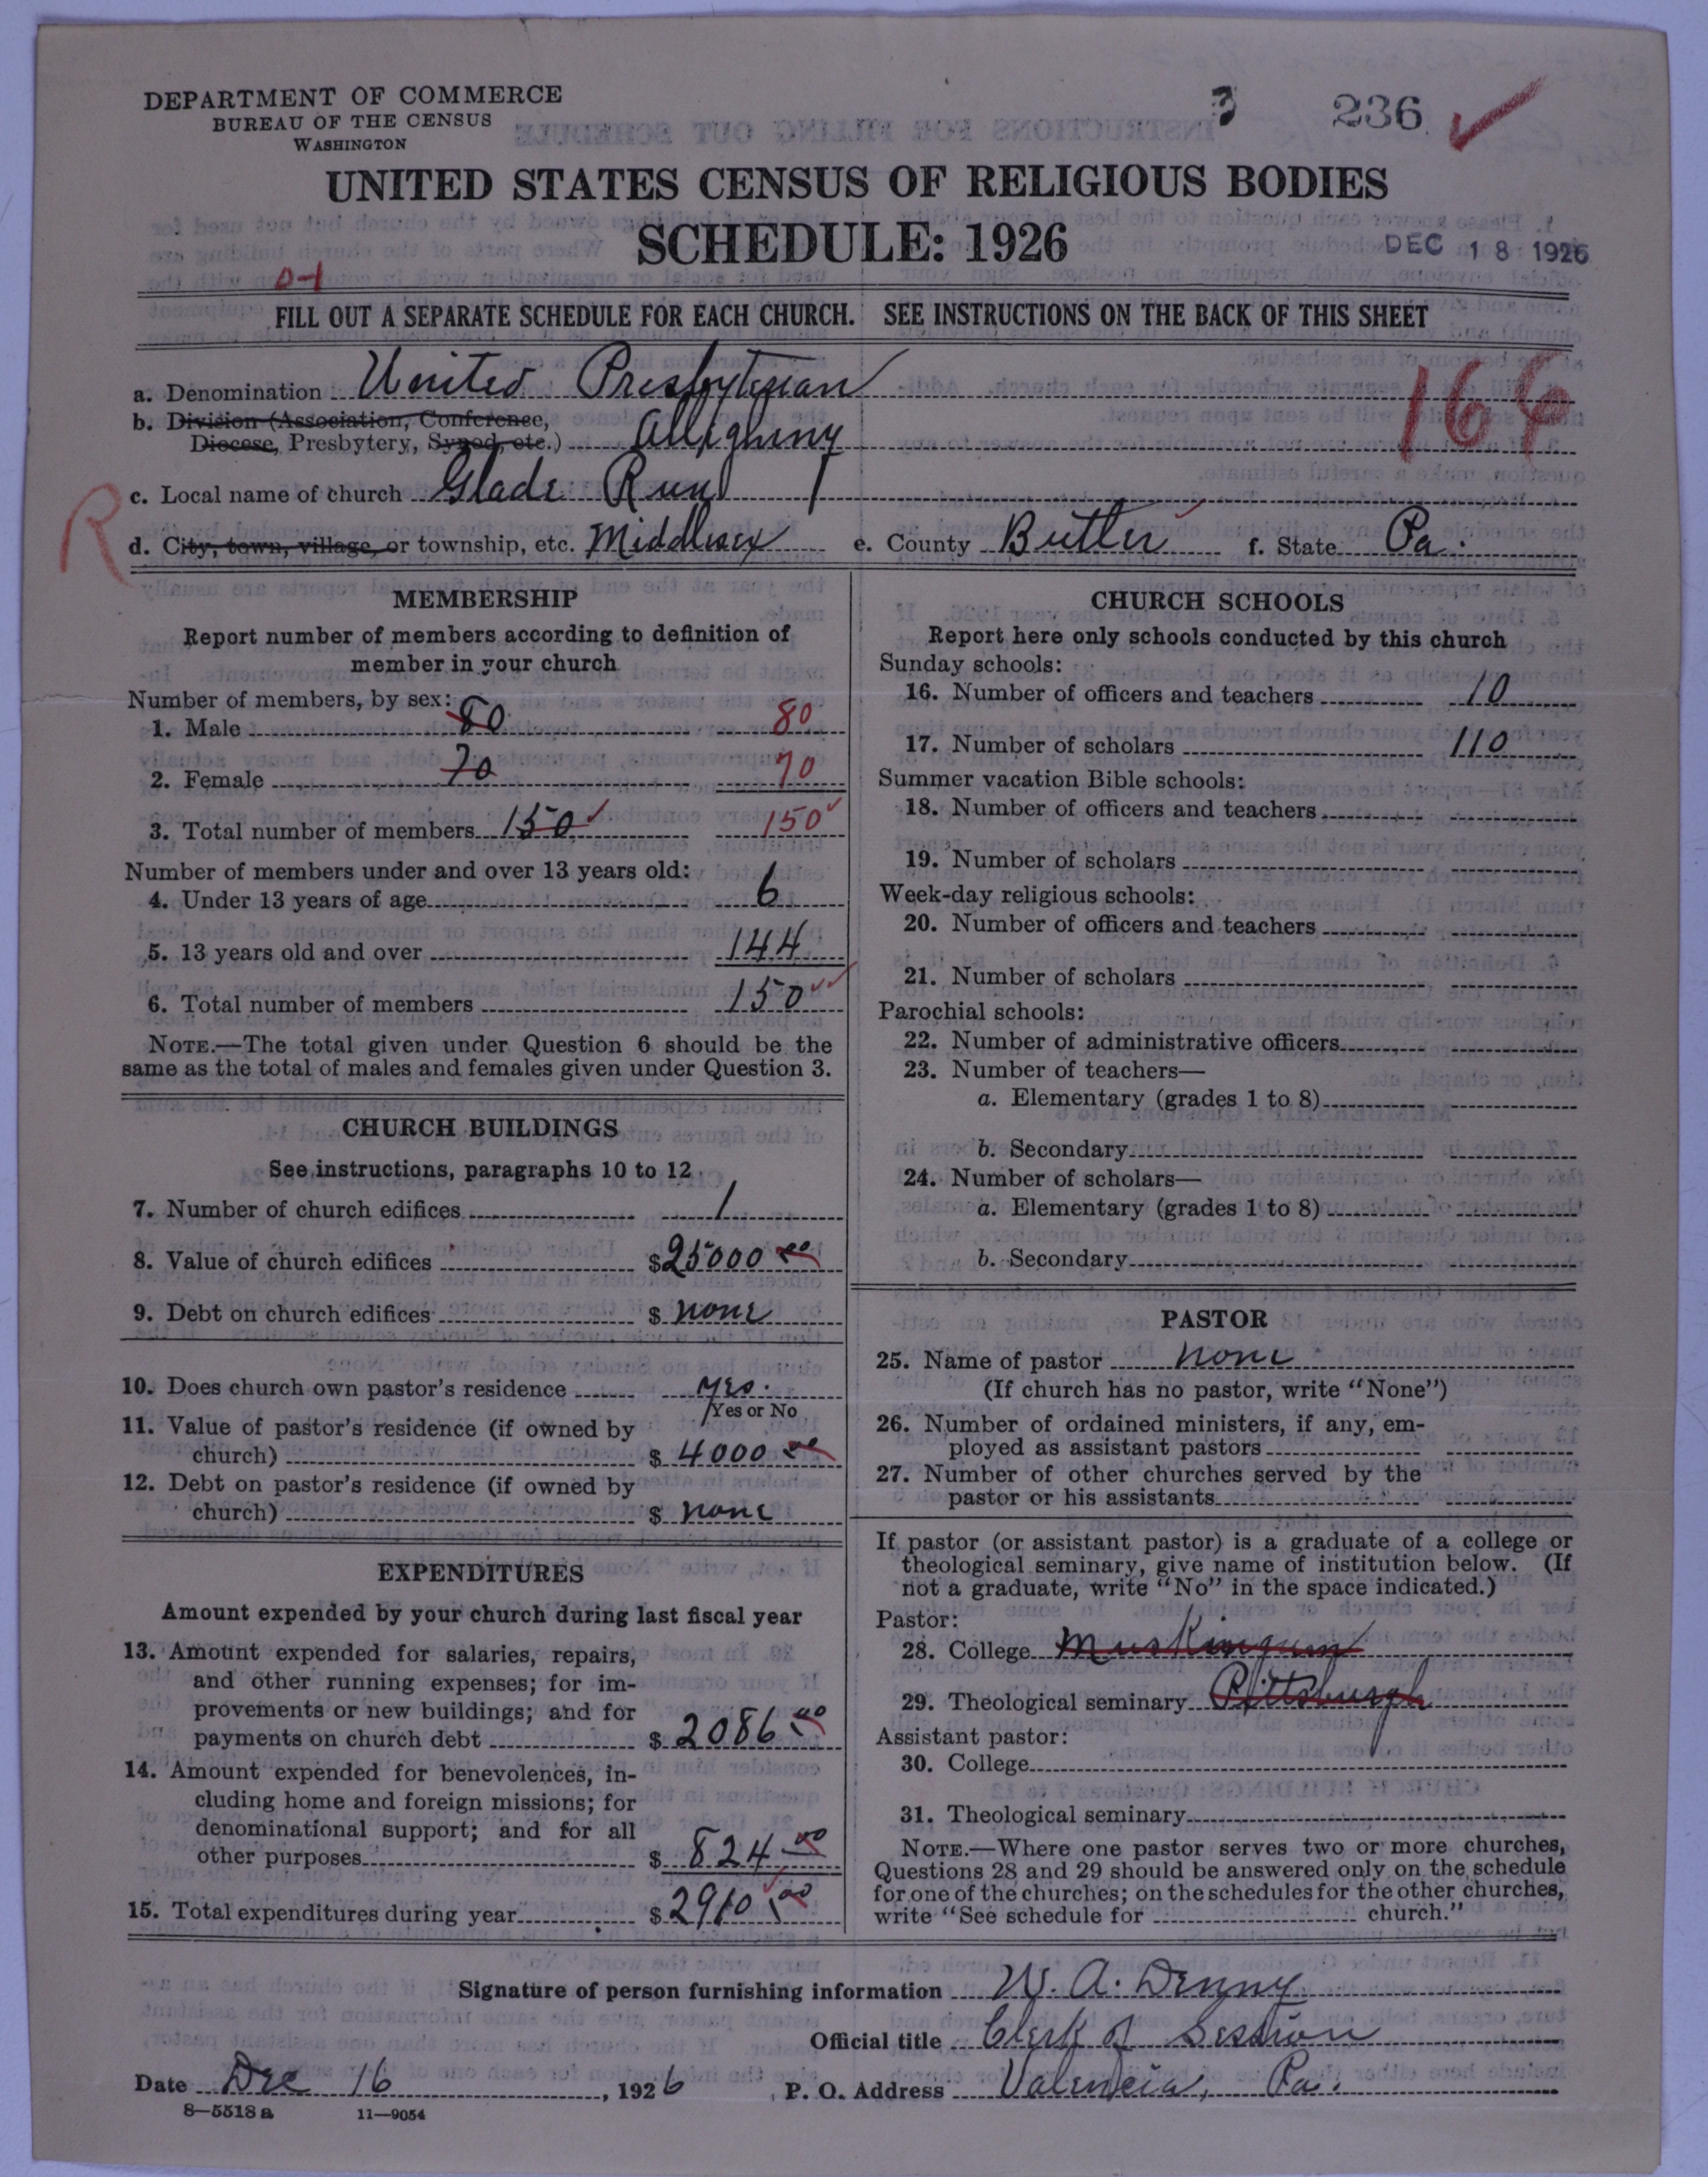 DEPARTMENT OF COMMERCE
BUREAU OF THE CENSUS
WASHINGTON
3 236
UNITED STATES CENSUS OF RELIGIOUS BODIES
SCHEDULE: 1926
DEC 18 1926
0-1
FILL OUT A SEPARATE SCHEDULE FOR EACH CHURCH. SEE INSTRUCTIONS ON THE BACK OF THIS SHEET
a. Denomination United Presbyterian
164
b. Division (Association, Conference,
Diocese, Presbytery, Synod, etc.) Allegheny
c. Local name of church Glade Run
R
d. City, town, village, or township, etc. Middlesex e. County Butler f. State Pa.
MEMBERSHIP
Report number of members according to definition of
member in your church
Number of members, by sex:
1. Male 80 80
2. Female 70 70
3. Total number of members 150 150
Number of members under and over 13 years old:
4. Under 13 years of age 6
5. 13 years old and over 144
6. Total number of members 150
NOTE.—The total given under Question 6 should be the
same as the total of males and females given under Question 3.
CHURCH BUILDINGS
See instructions, paragraphs 10 to 12
7. Number of church edifices 1
8. Value of church edifices $25000 00
9. Debt on church edifices $ none
10. Does church own pastor's residence yes.
Yes or No
11. Value of pastor's residence (if owned by
church) $ 4000 00
12. Debt on pastor's residence (if owned by
church) $ none
EXPENDITURES
Amount expended by your church during last fiscal year
13. Amount expended for salaries, repairs,
and other running expenses; for im-
provements or new buildings; and for
payments on church debt $ 2086 00
14. Amount expended for benevolences, in-
cluding home and foreign missions; for
denominational support; and for all
other purposes $ 824 00
15. Total expenditures during year $ 2910 00
CHURCH SCHOOLS
Report here only schools conducted by this church
Sunday schools:
16. Number of officers and teachers 10
17. Number of scholars 110
Summer vacation Bible schools:
18. Number of officers and teachers
19. Number of scholars
Week-day religious schools:
20. Number of officers and teachers
21. Number of scholars
Parochial schools:
22. Number of administrative officers
23. Number of teachers—
a. Elementary (grades 1 to 8)
b. Secondary
24. Number of scholars—
a. Elementary (grades 1 to 8)
b. Secondary
PASTOR
25. Name of pastor none
(If church has no pastor, write "None")
26. Number of ordained ministers, if any, em-
ployed as assistant pastors
27. Number of other churches served by the
pastor or his assistants
If pastor (or assistant pastor) is a graduate of a college or
theological seminary, give name of institution below. (If
not a graduate, write "No" in the space indicated.)
Pastor:
28. College Muskingum
29. Theological seminary Pittsburgh
Assistant pastor:
30. College
31. Theological seminary
NOTE.—Where one pastor serves two or more churches,
Questions 28 and 29 should be answered only on the schedule
for one of the churches; on the schedules for the other churches,
write "See schedule for church."
Signature of person furnishing information W. A. Denny
Official title Clerk of Session
Date Dec 16, 1926 P. O. Address Valencia, Pa.
8—5518a 11—9054